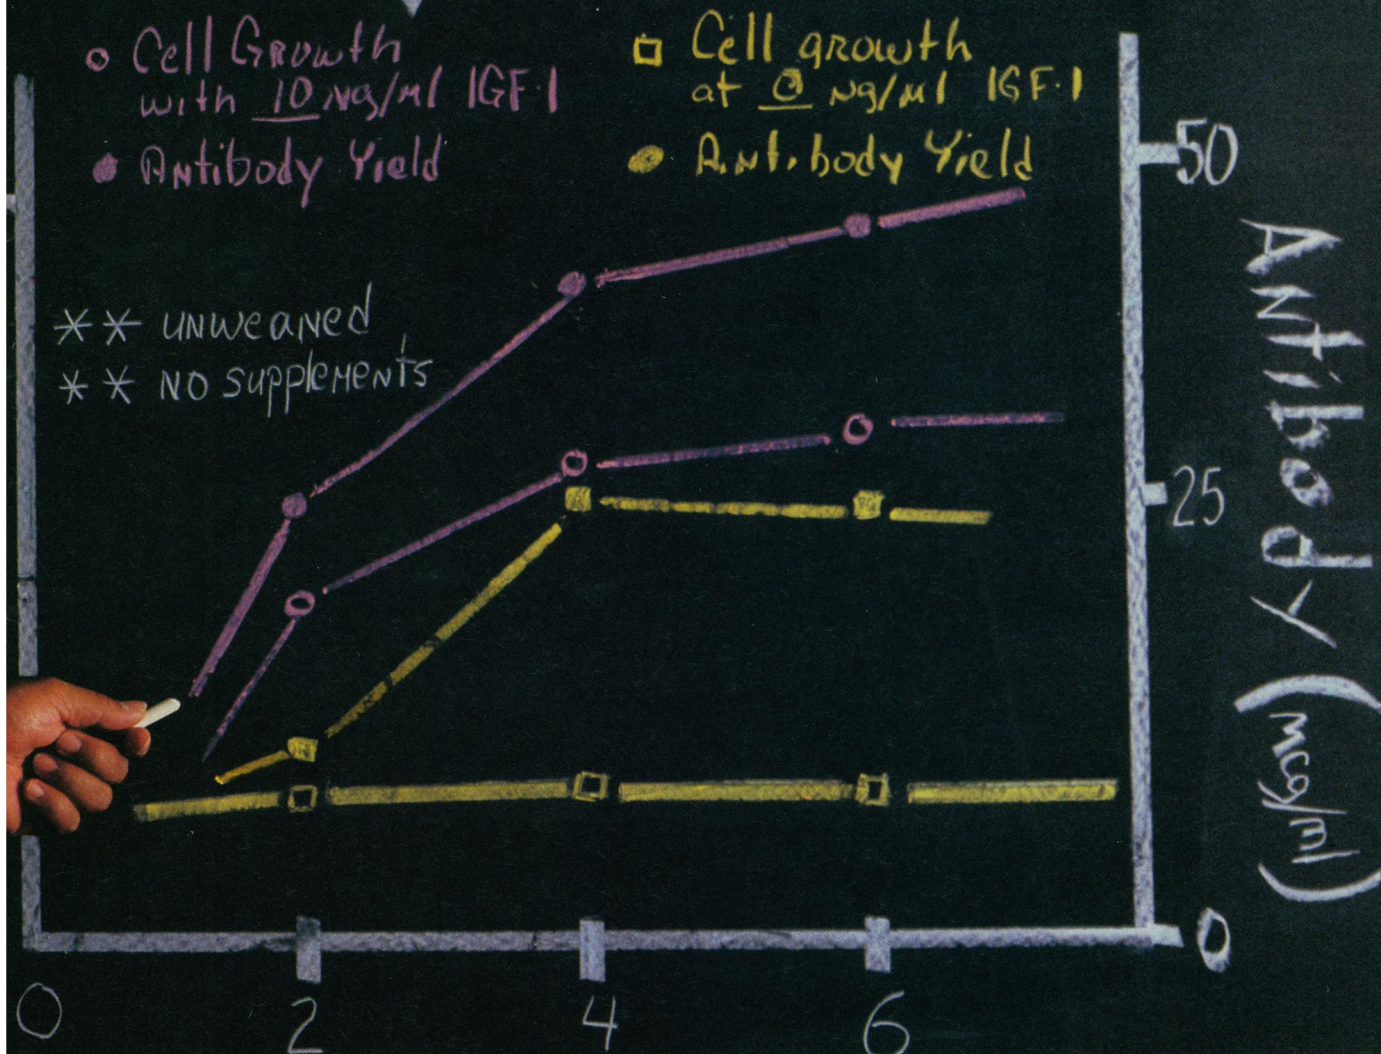 o Cell Growth
with 10 Ng/ml IGF-I
● Antibody Yield
□ Cell growth
at 0 Ng/ml IGF-I
● Antibody Yield
** unweaned
** No supplements
50
25
0
Antibody (mcg/ml)
0 2 4 6